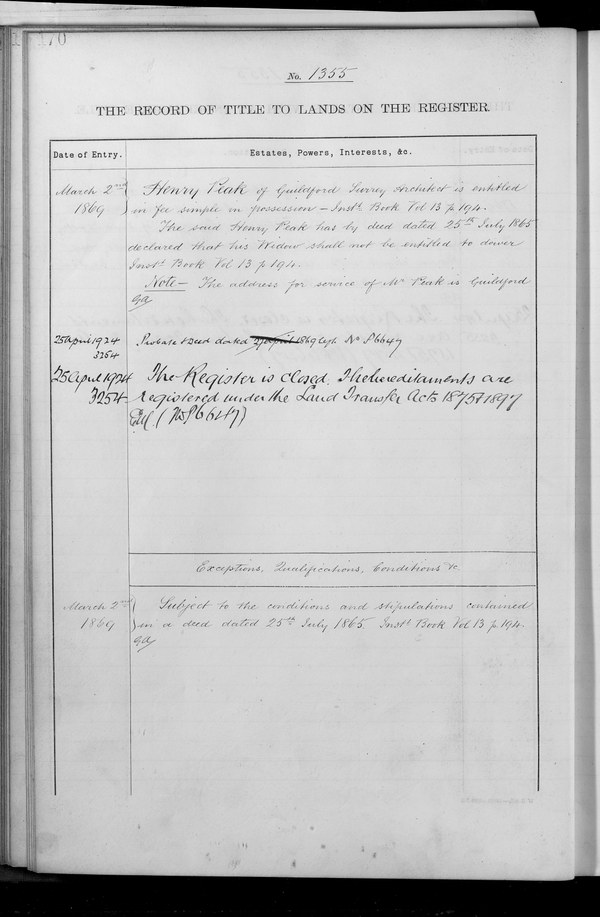 170
No. 1355
THE RECORD OF TITLE TO LANDS ON THE REGISTER.
Date of Entry.
Estates, Powers, Interests, &c.
March 2nd 1869
Henry Peak of Guildford Surrey Architect is entitled
in fee simple in possession – Inst. Book Vol 13 p 194.
The said Henry Peak has by deed dated 25th July 1865
declared that his Widow shall not be entitled to dower
Inst. Book Vol 13 p 194.
Note – The address for service of Mr Peak is Guildford
25 April 1924
3254
Probate & Deed dated 1869 No P6647
25 April 1924
3254
The Register is closed. The hereditaments are
registered under the Land Transfer Acts 1875 & 1897
(No P6647)
Exceptions, Qualifications, Conditions &c.
March 2nd 1869
Subject to the conditions and stipulations contained
in a deed dated 25th July 1865 Inst. Book Vol 13 p 194.